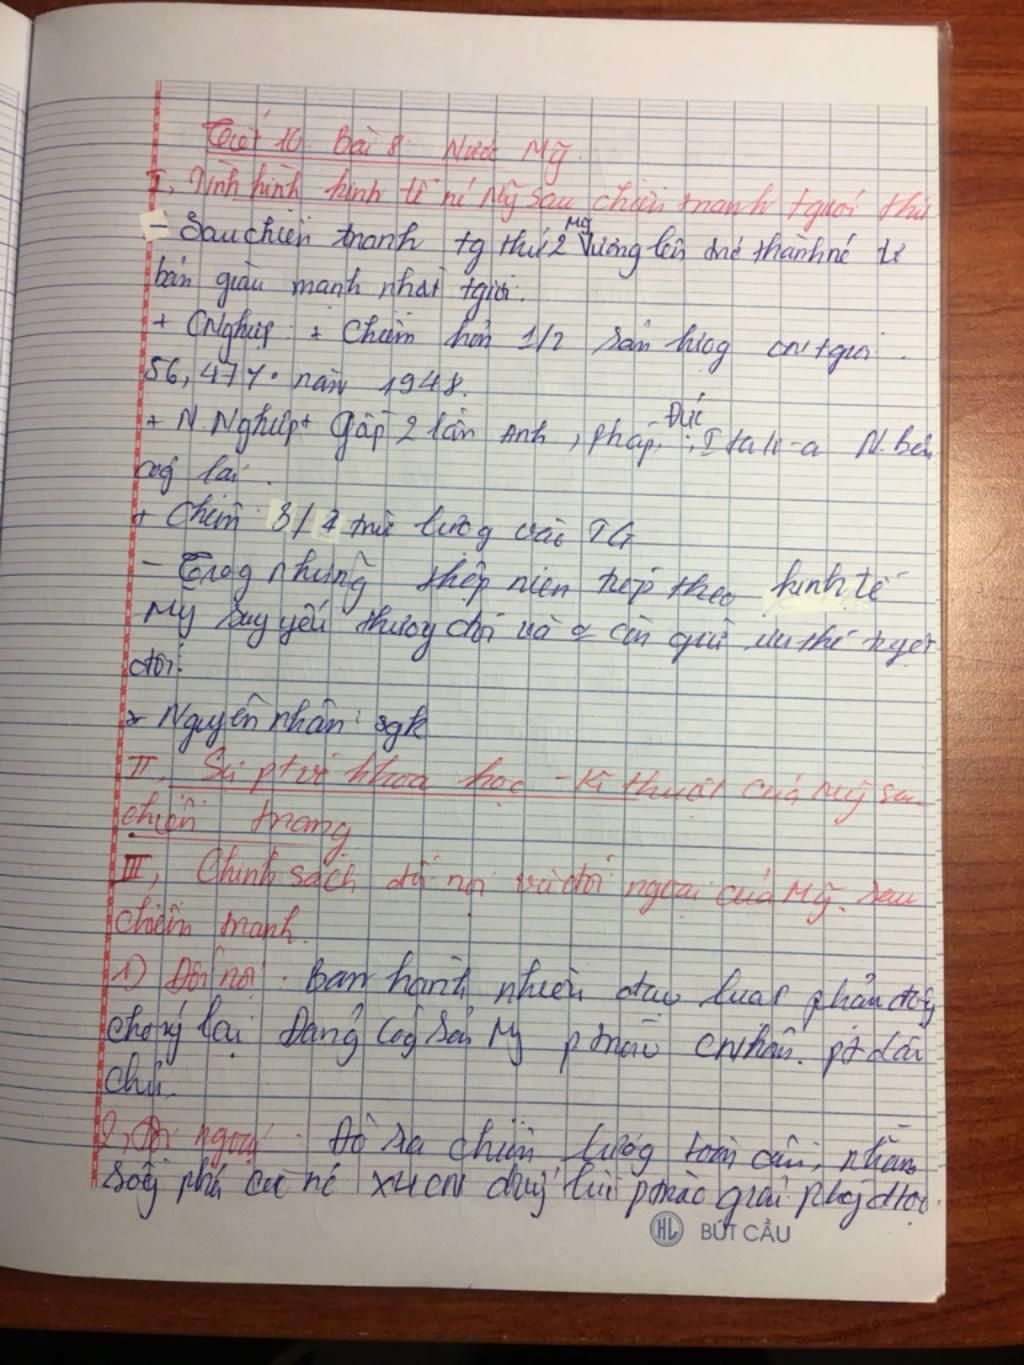 Tiết 10 Bài 8: Nước Mỹ.
I, Tình hình kinh tế nc Mỹ sau chiến tranh tgiới thứ
- Sau chiến tranh tg thứ 2 Mỹ vươn lên trở thành nc tư
bản giàu mạnh nhất tgiới.
+ CNghiệp: + Chiếm hơn 1/2 sản lượg CN tgiới.
56,47% năm 1948.
+ N.Nghiệp + Gấp 2 lần Anh, Pháp, Đức, Itali-a N.bản
cộg lại.
+ Chiếm 3/4 trữ lượg vàg TG
- Trog những thập niên tiếp theo kinh tế
Mỹ suy yếu và ưu thế tuyệt
đối.
* Nguyên nhân: sgk
II, Sự ptriể khoa học - Kĩ thuật của Mỹ sau
chiến trang
III, Chính sách đối nội và đối ngoại của Mỹ. sau
chiến tranh.
1) Đối nội. Ban hành nhiều đạo luật phản độg
chống lại Đảng Cộg sản Mỹ ptrào CNhân. pt dân
chủ.
2, Đối ngoại. Đề ra chiến lượg toàn cầu, nhằm
các nc XHCN đẩy lùi ptrào giải phóg dtộc.
HL BÚT CẦU